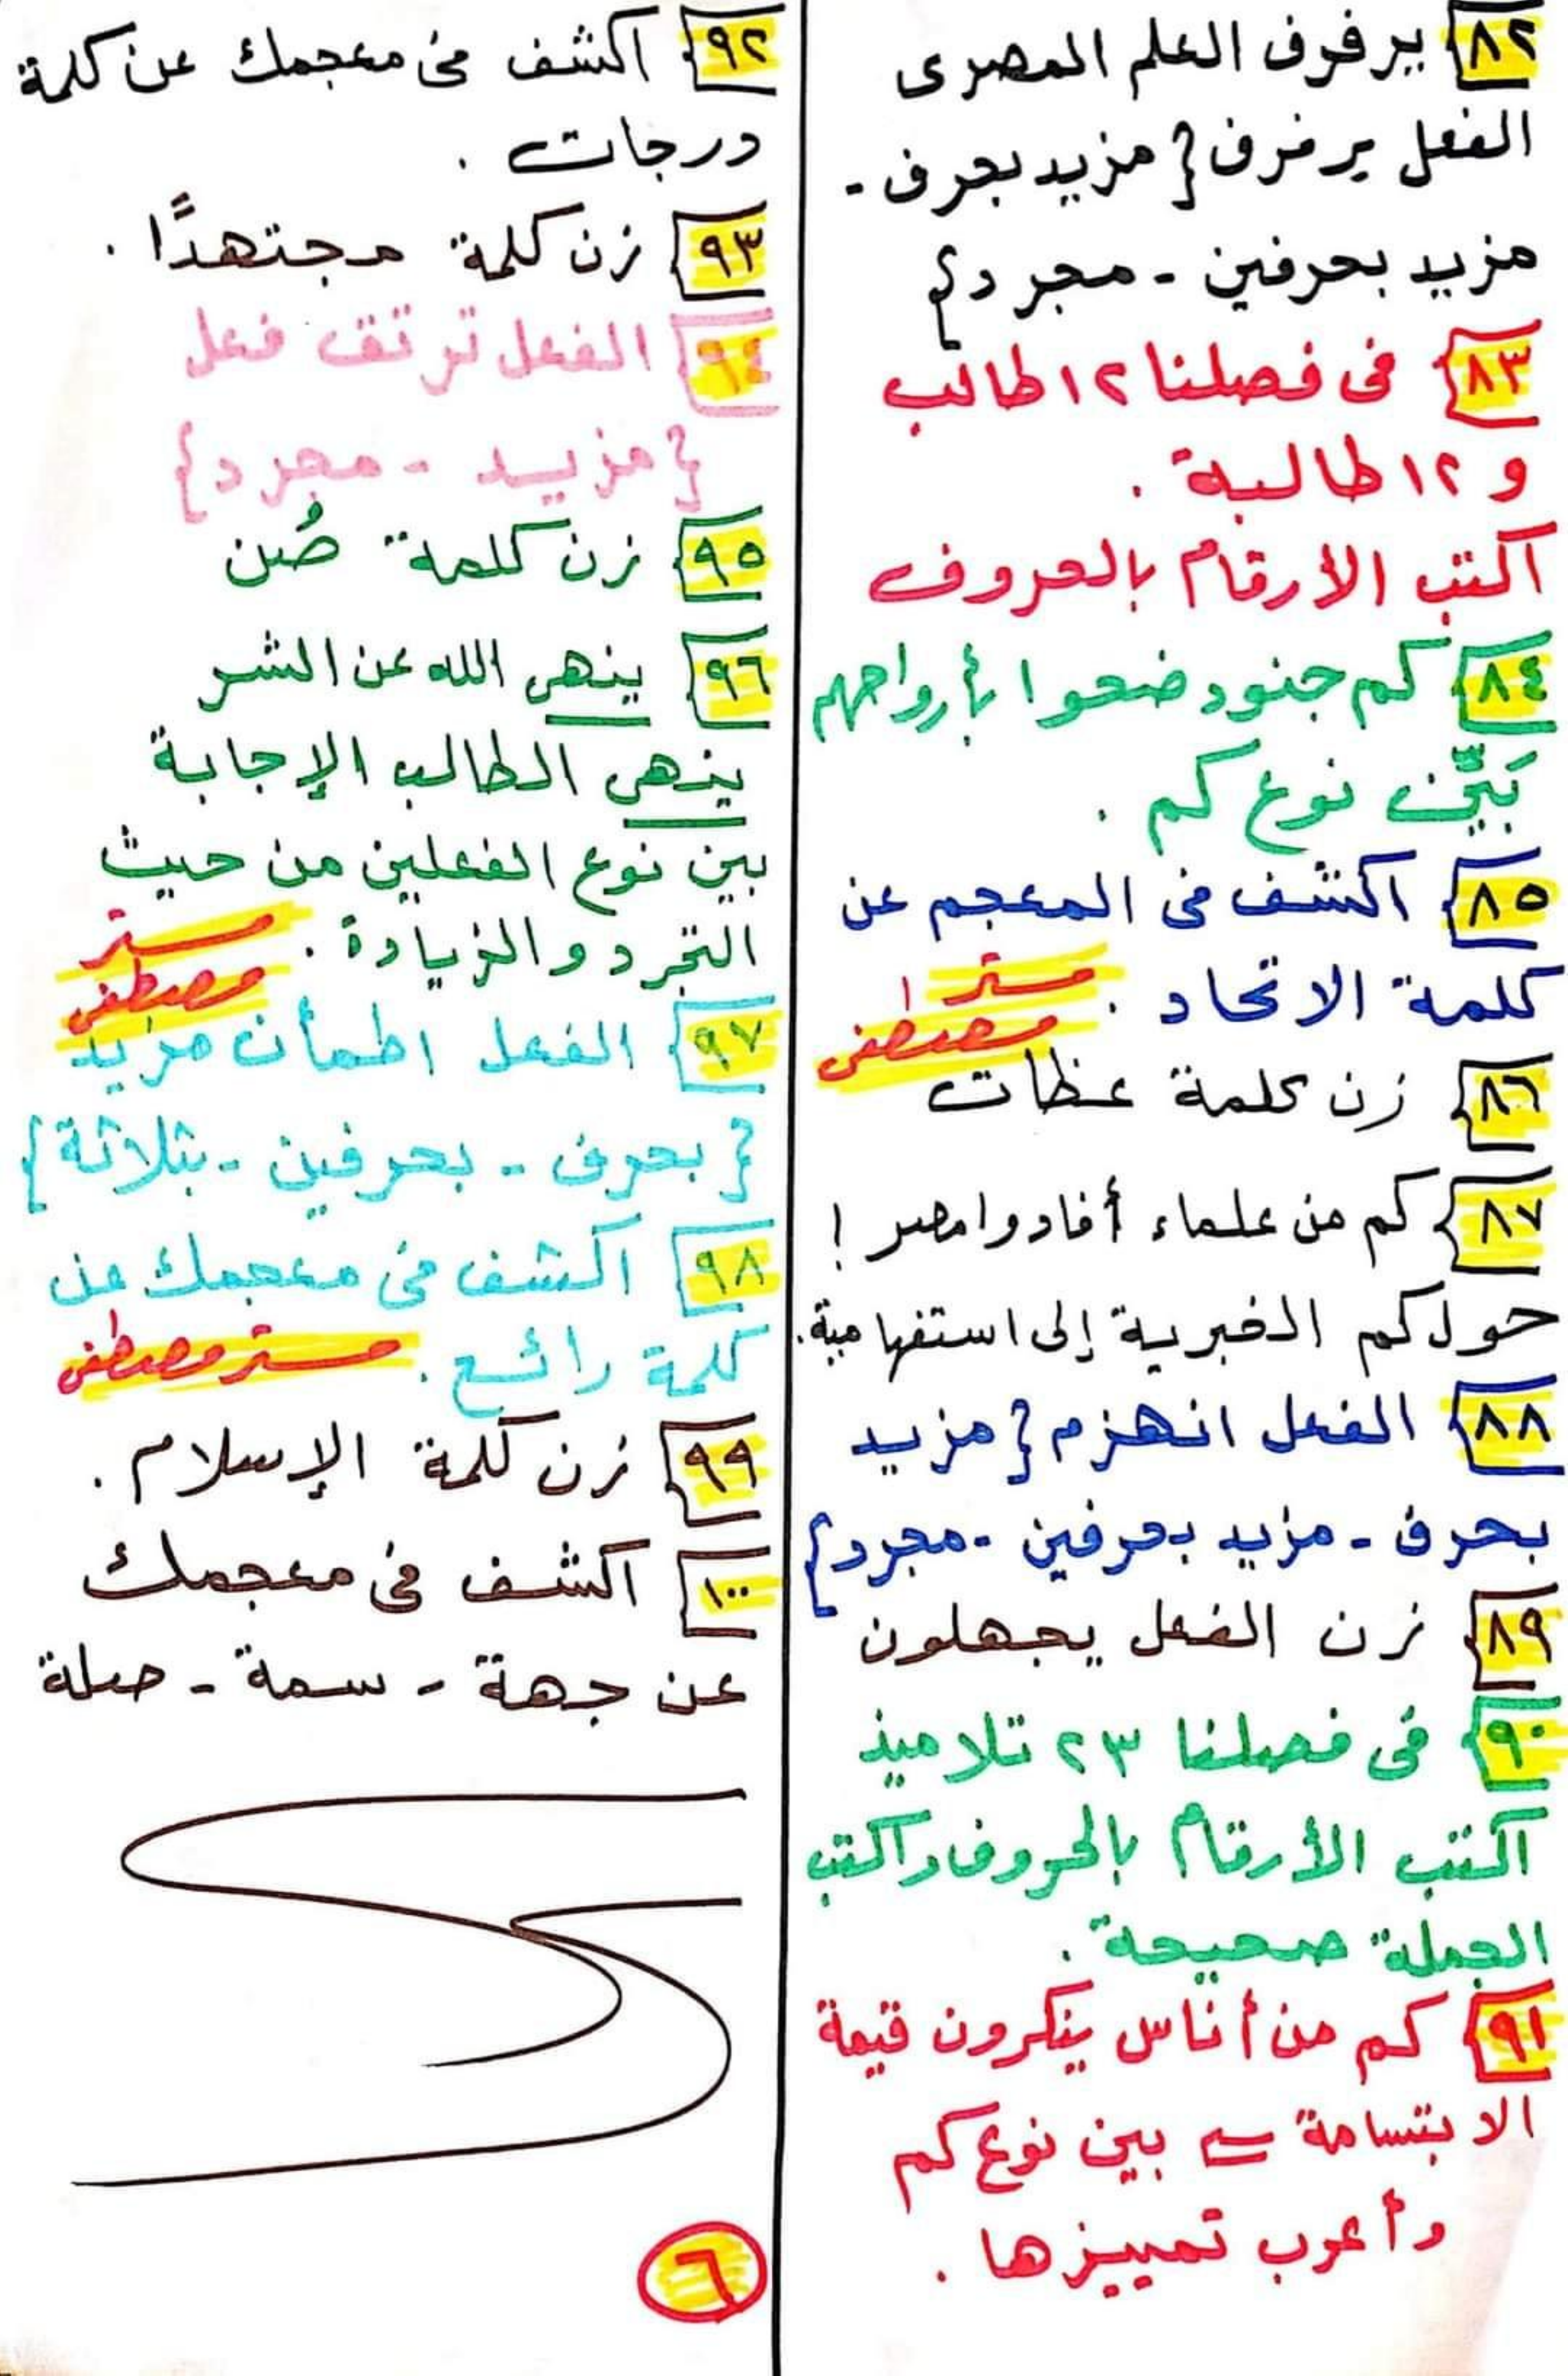 ٨٢ يرفرف العلم المصرى
الفعل يرفرف { مزيد بحرف -
مزيد بحرفين - مجرد }
٨٣ فى فصلنا ١٢ طالب
و ١٢ طالبة .
اكتب الارقام بالحروف
٨٤ كم جنود ضحوا بأرواحهم
بَيِّن نوع كم .
٨٥ اكشف فى المعجم عن
كلمة الاتحاد .
مستر
مصطفى
٨٦ زن كلمة عظات
٨٧ كم من علماء أفادوا مصر !
حول كم الخبرية إلى استفهامية .
٨٨ الفعل انهزم { مزيد
بحرف - مزيد بحرفين - مجرد }
٨٩ زن الفعل يجهلون
٩٠ فى فصلنا ٢٣ تلاميذ
اكتب الأرقام بالحروف واكتب
الجملة صحيحة .
٩١ كم من أناس ينكرون قيمة
الابتسامة بين نوع كم
وأعرب تمييزها .
٩٢ اكشف فى معجمك عن كلمة
درجات .
٩٣ زن كلمة مجتهدًا .
٩٤ الفعل ترتقى فعل
{ مزيد - مجرد }
٩٥ زن كلمة صُن
٩٦ ينهى الله عن الشر
ينهى الطالب الإجابة
بين نوع الفعلين من حيث
التجرد والزيادة .
مستر
مصطفى
٩٧ الفعل اطمأن مزيد
{ بحرف - بحرفين - بثلاثة }
٩٨ اكشف فى معجمك عن
كلمة رائع . مستر مصطفى
٩٩ زن كلمة الإسلام .
١٠٠ اكشف فى معجمك
عن جهة - سمة - صلة
٦